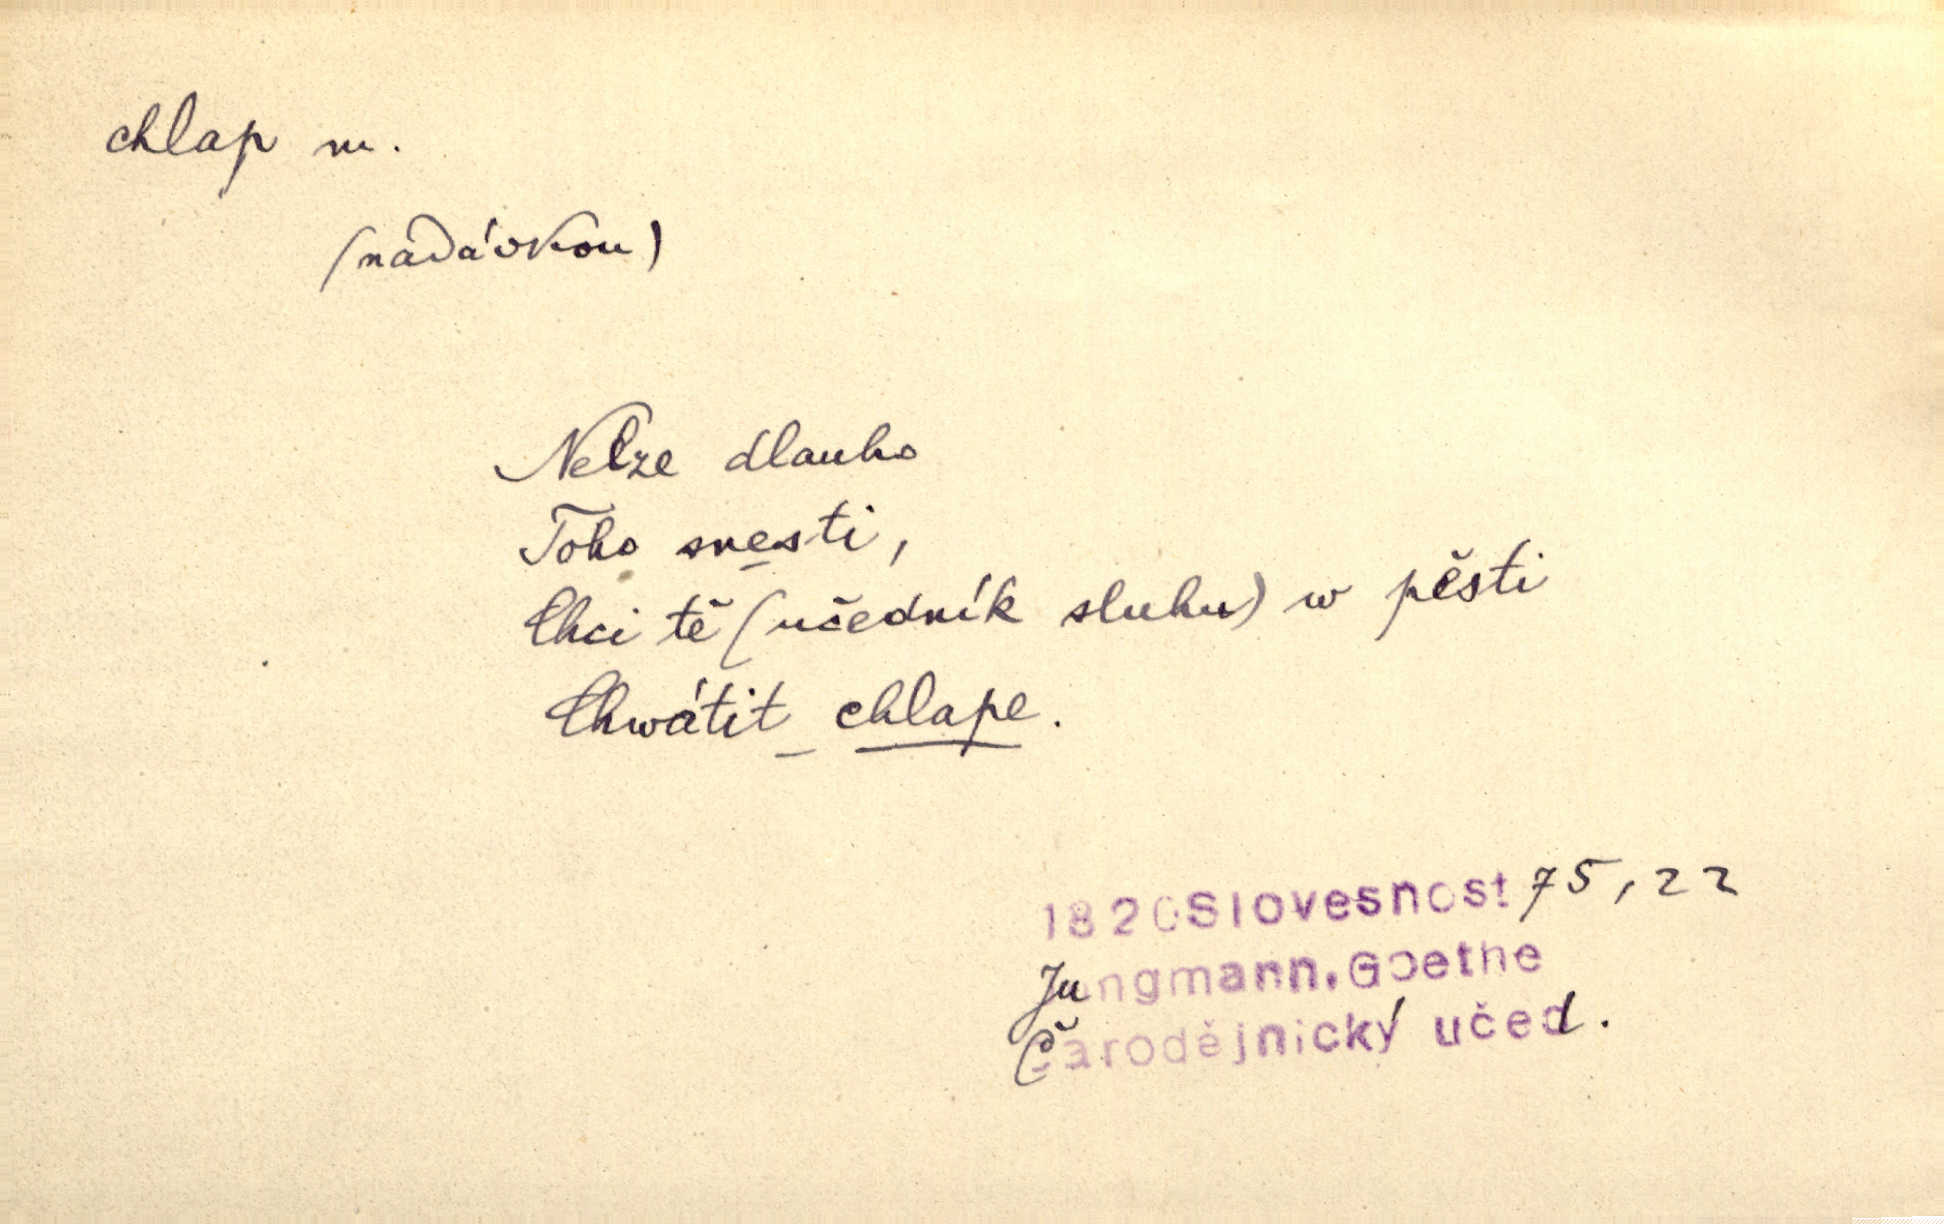 chlap m.
(nadávkou)
Nelze dlauho
Toho snesti,
Chci tě (učedník sluhu) w pěsti
Chwátit chlape.
1820 Slovesnost 75,22
Jungmann. Goethe
Čarodějnický učed.